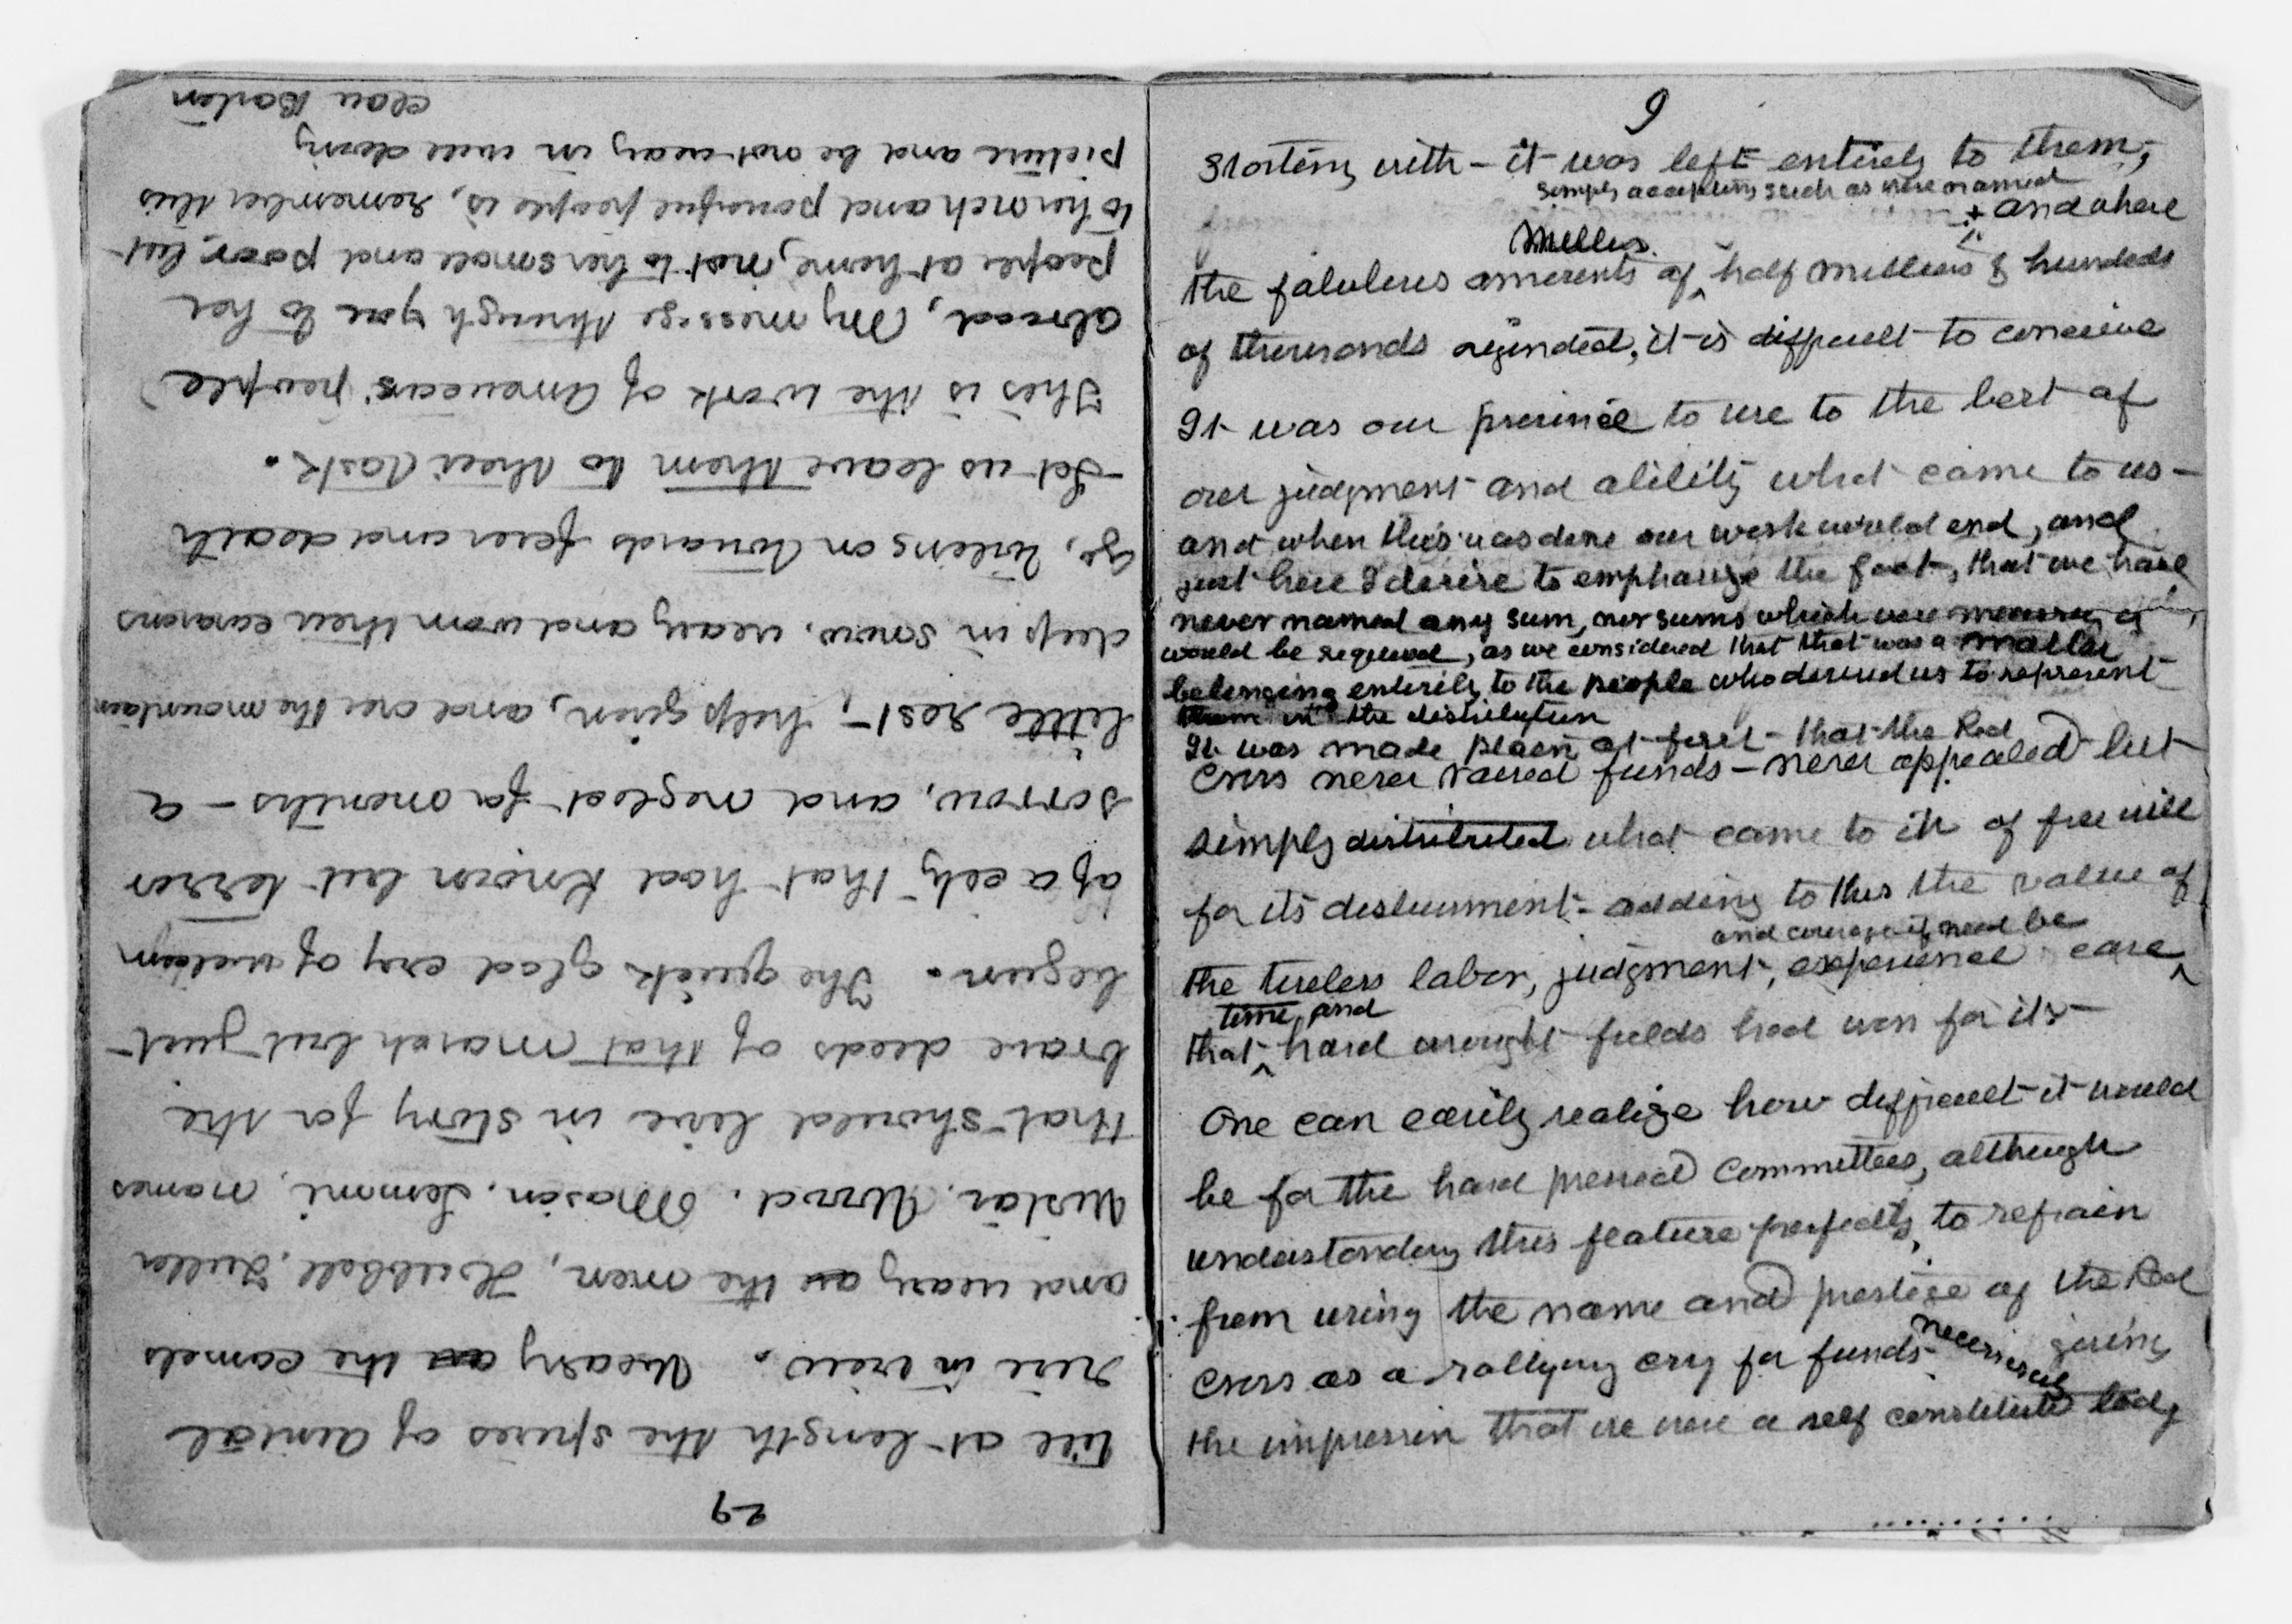 29
till at length the spires of Aintab
rise in view. Weary the camels
and weary the men, Hubbell, Fuller
Wistar, Wood. Mason. Lemmi. names
that should live in story for the
brave deeds of that march but just
begun. The quick glad cry of welcom
of a city that had known but terror
sorrow, and neglect for months – a
little rest – help given, and over the mountain
deep in snow, weary and worn their caravans
go, toiling on towards fever and death
Let us leave them to their task.
This is the work of Americas' people
abroad, My message through you to her
people at home, not to her small and poor, but
to her rich and powerful people is, remember this
picture and be not weary in well doing
Clara Barton
9
Starting with – it was left entirely to them,
simply accepting such as were named
+ and where
Millions
the fabulous amounts of half millions & hundreds
of thousands originated, it is difficult to conceive
It was our province to use to the best of
our judgment and ability what came to us –
and when this was done our work would end, and
just here I desire to emphasize the fact, that we have
never named any sum, nor sums which were necessary or
would be required, as we considered that that was a matter
belonging entirely to the people who desired us to represent
them in the distribution
It was made plain at first – that the Red
Cross never raised funds – never appealed but
simply distributed what came to it of free will
for its disbursment – adding to this the value of
and courage if need be
the tireless labor, judgment, experience care
time and
that hard wrought fields had won for it –
One can easily realize how difficult it would
be for the hard pressed Committees, although
understanding this feature perfectly, to refrain
from using the name and prestige of the Red
Cross as a rallying cry for funds – necessarily giving
the impression that we were a self constituted body